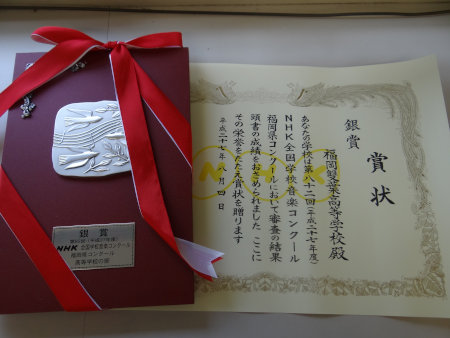 賞状
銀賞
福岡雙葉高等学校殿
あなたの学校は第八十二回(平成二十七年度)
NHK全国学校音楽コンクール
福岡県コンクールにおいて審査の結果
頭書の成績をおさめられました ここに
その栄誉をたたえ賞状を贈ります
平成二十七年八月四日
銀賞
第82回(平成27年度)
NHK全国学校音楽コンクール
福岡県コンクール
高等学校の部